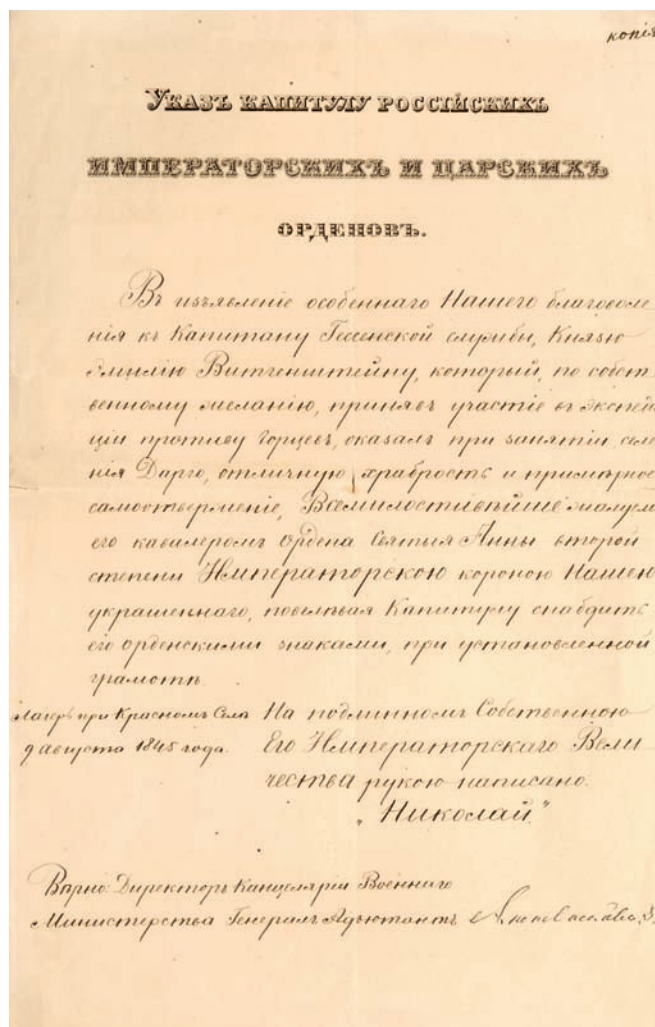 копія
Указъ капитулу россійскихъ
императорскихъ и царскихъ
орденовъ.
Въ изъявленіе особеннаго Нашего благоволе
нія къ Капитану Гессенской службы, Князю
Эмилію Витгенштейну, который, по собст
венному желанію, принявъ участіе въ экспеди
ціи противу Горцевъ, оказалъ при занятіи селе
нія Дарго, отличную храбрость и примѣрное
самоотверженіе, Всемилостивѣйше жалуемъ
его кавалеромъ Ордена Святыя Анны второй
степени Императорскою короною Нашею
украшеннаго, повелѣвая Капитулу снабдить
его орденскими знаками, при установленной
грамотѣ.
Лагерь при Красномъ Селѣ
9 августа 1845 года.
На подлинномъ Собственною
Его Императорскаго Вели
чества рукою написано:
"Николай"
Вѣрно: Директоръ Канцеляріи Военнаго
Министерства Генералъ Адъютантъ